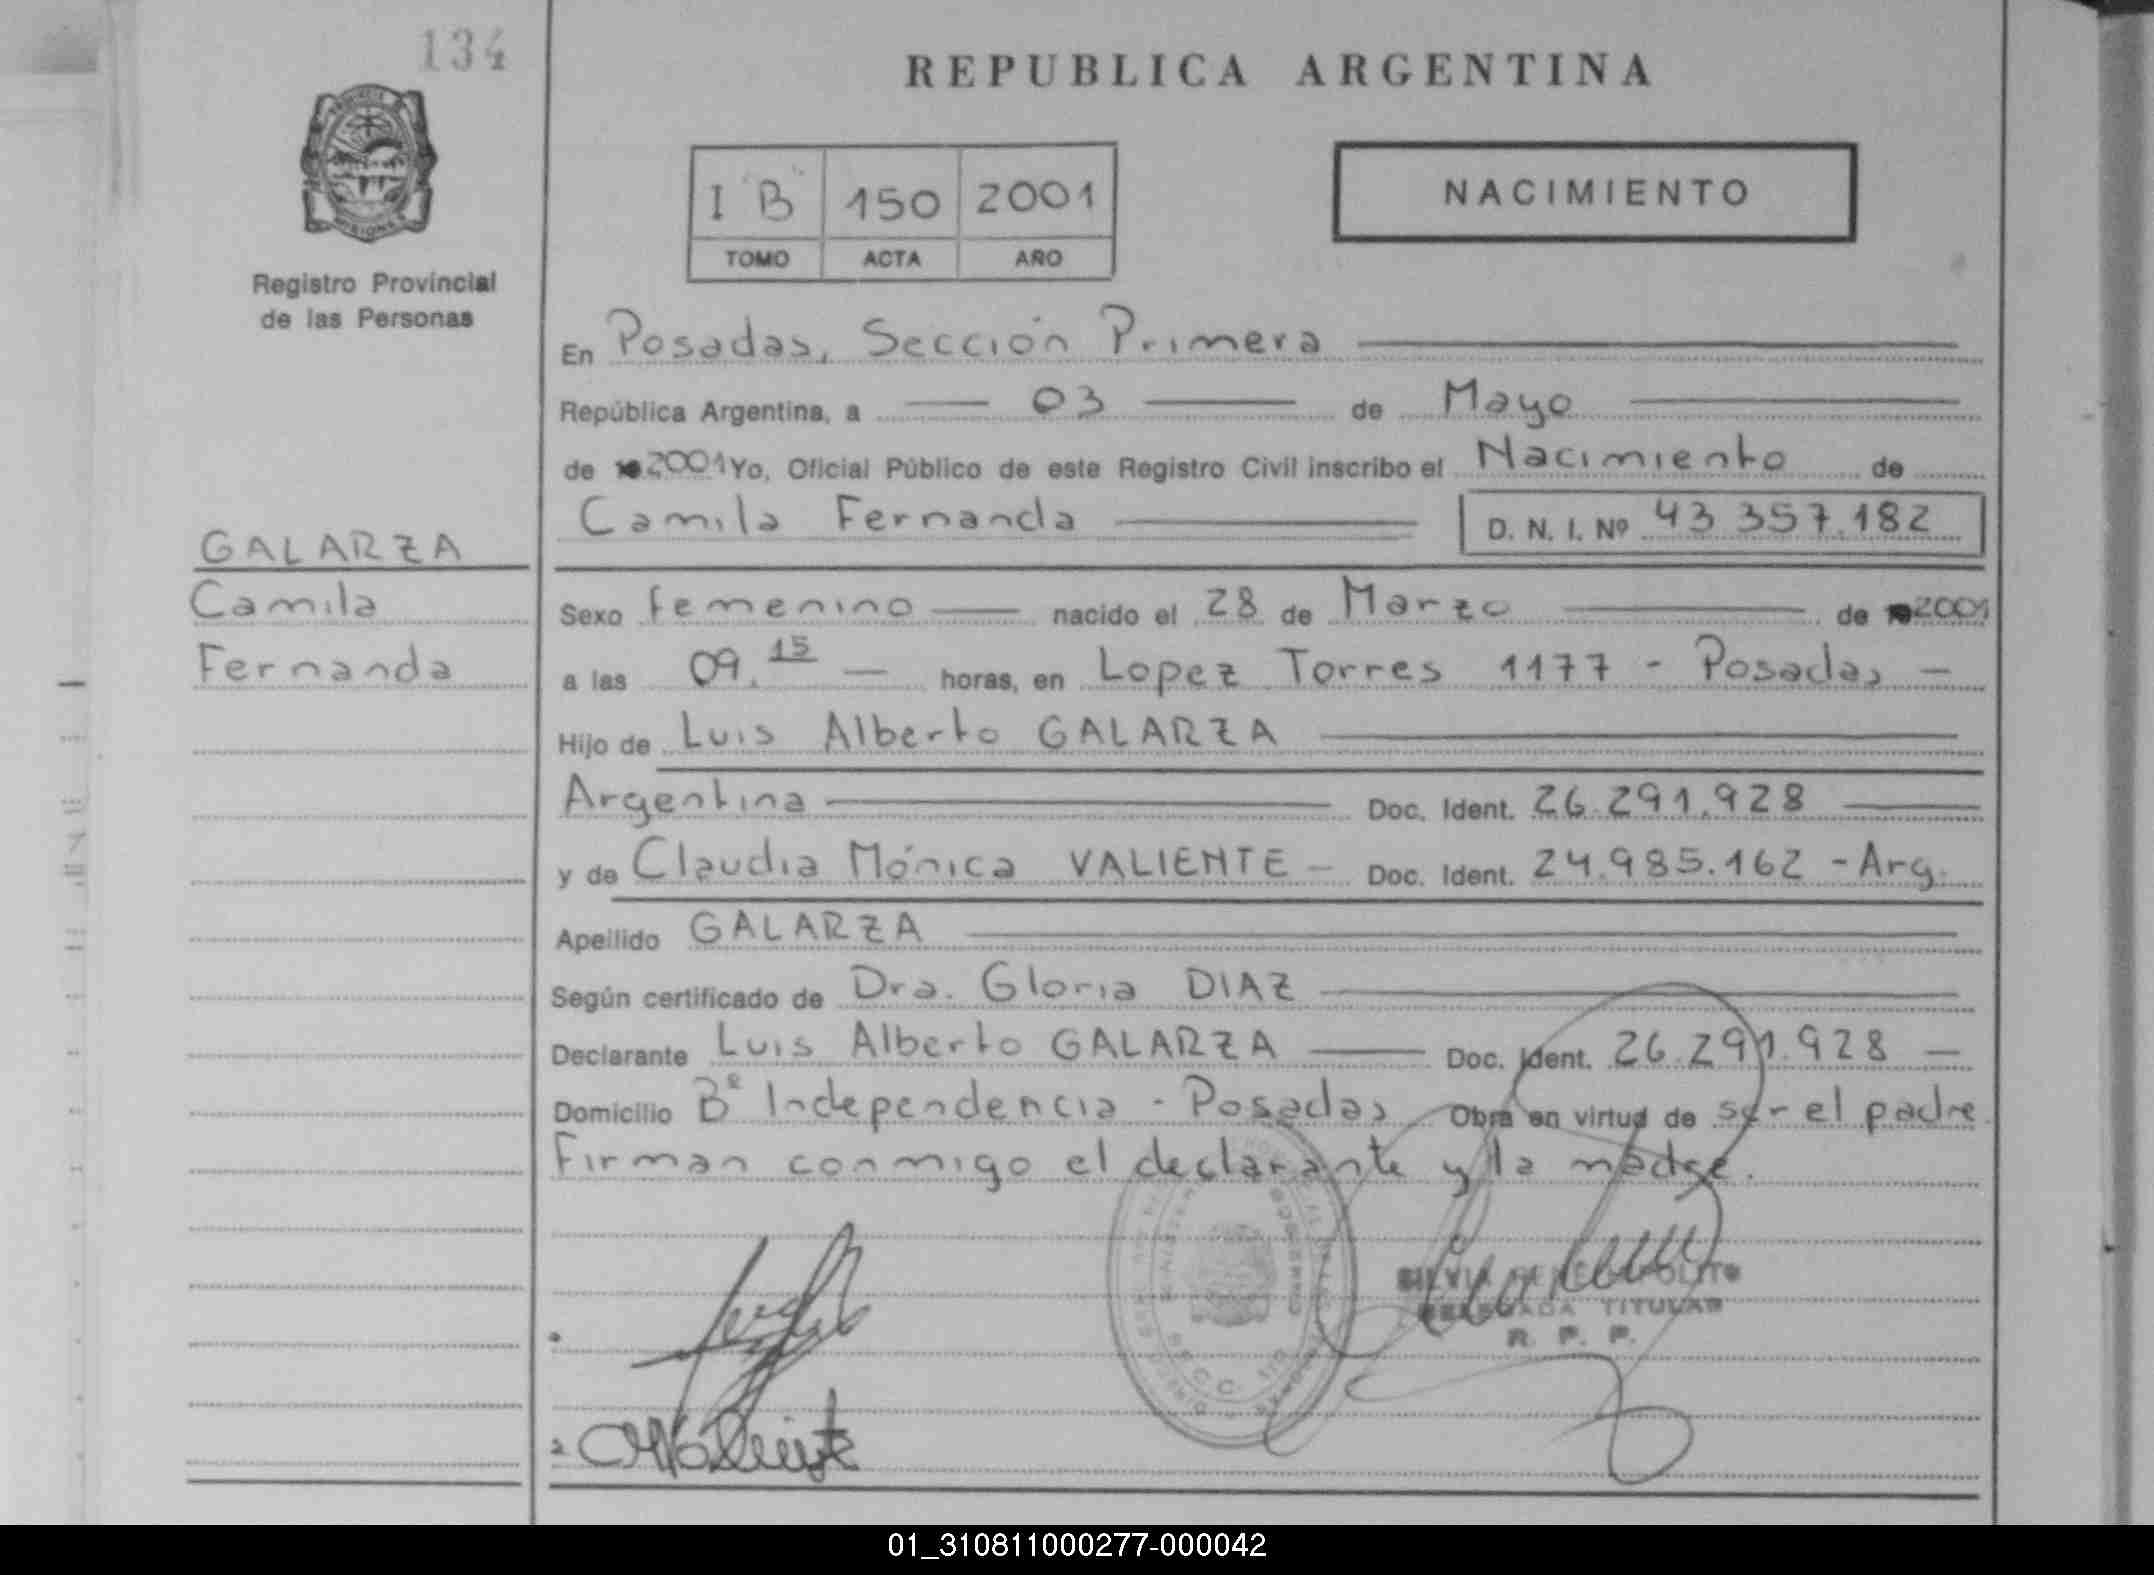 134
REPUBLICA ARGENTINA
I "B" 150 2001
TOMO ACTA AÑO
NACIMIENTO
Registro Provincial
de las Personas
En Posadas, Sección Primera
República Argentina, a 03 de Mayo
de 2001 Yo, Oficial Público de este Registro Civil inscribo el Nacimiento de
Camila Fernanda D. N. I. Nº 43 357.182
GALARZA
Camila
Fernanda
Sexo femenino nacido el 28 de Marzo de 2001
a las 09.15 horas, en Lopez Torres 1177 - Posadas
Hijo de Luis Alberto GALARZA
Argentina Doc. Ident. 26.291.928
y de Claudia Mónica VALIENTE - Doc. Ident. 24.985.162 - Arg.
Apellido GALARZA
Según certificado de Dra. Gloria DIAZ
Declarante Luis Alberto GALARZA Doc. Ident. 26.291.928
Domicilio Bº Independencia - Posadas Obra en virtud de ser el padre.
Firman conmigo el declarante y la madre.
SILVIA
TITULAR
R. P. P.
01_310811000277-000042